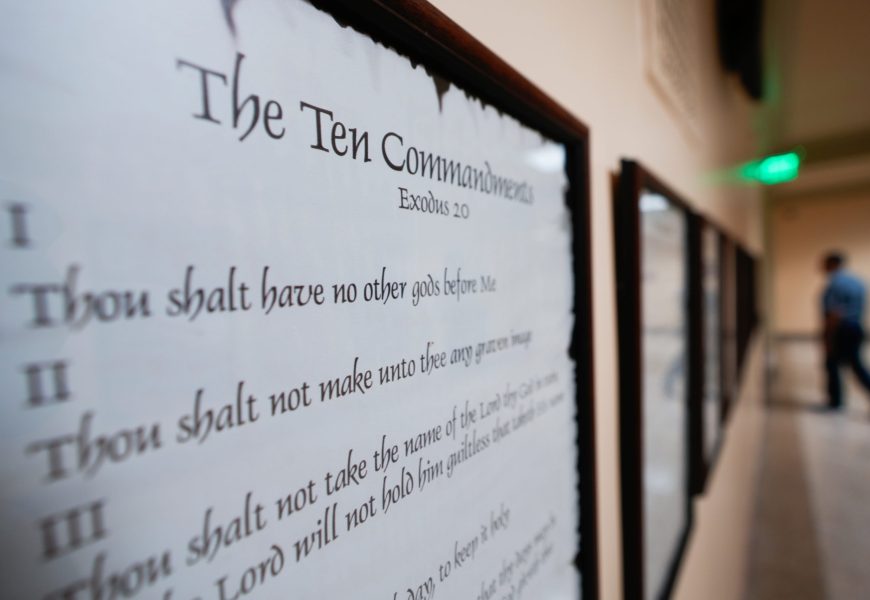 The Ten Commandments
Exodus 20
I
Thou shalt have no other gods before Me
II
Thou shalt not make unto thee any graven image
III
Thou shalt not take the name of the Lord thy God in vain
the Lord will not hold him guiltless that taketh His name
day, to keep it holy
that thy days may b